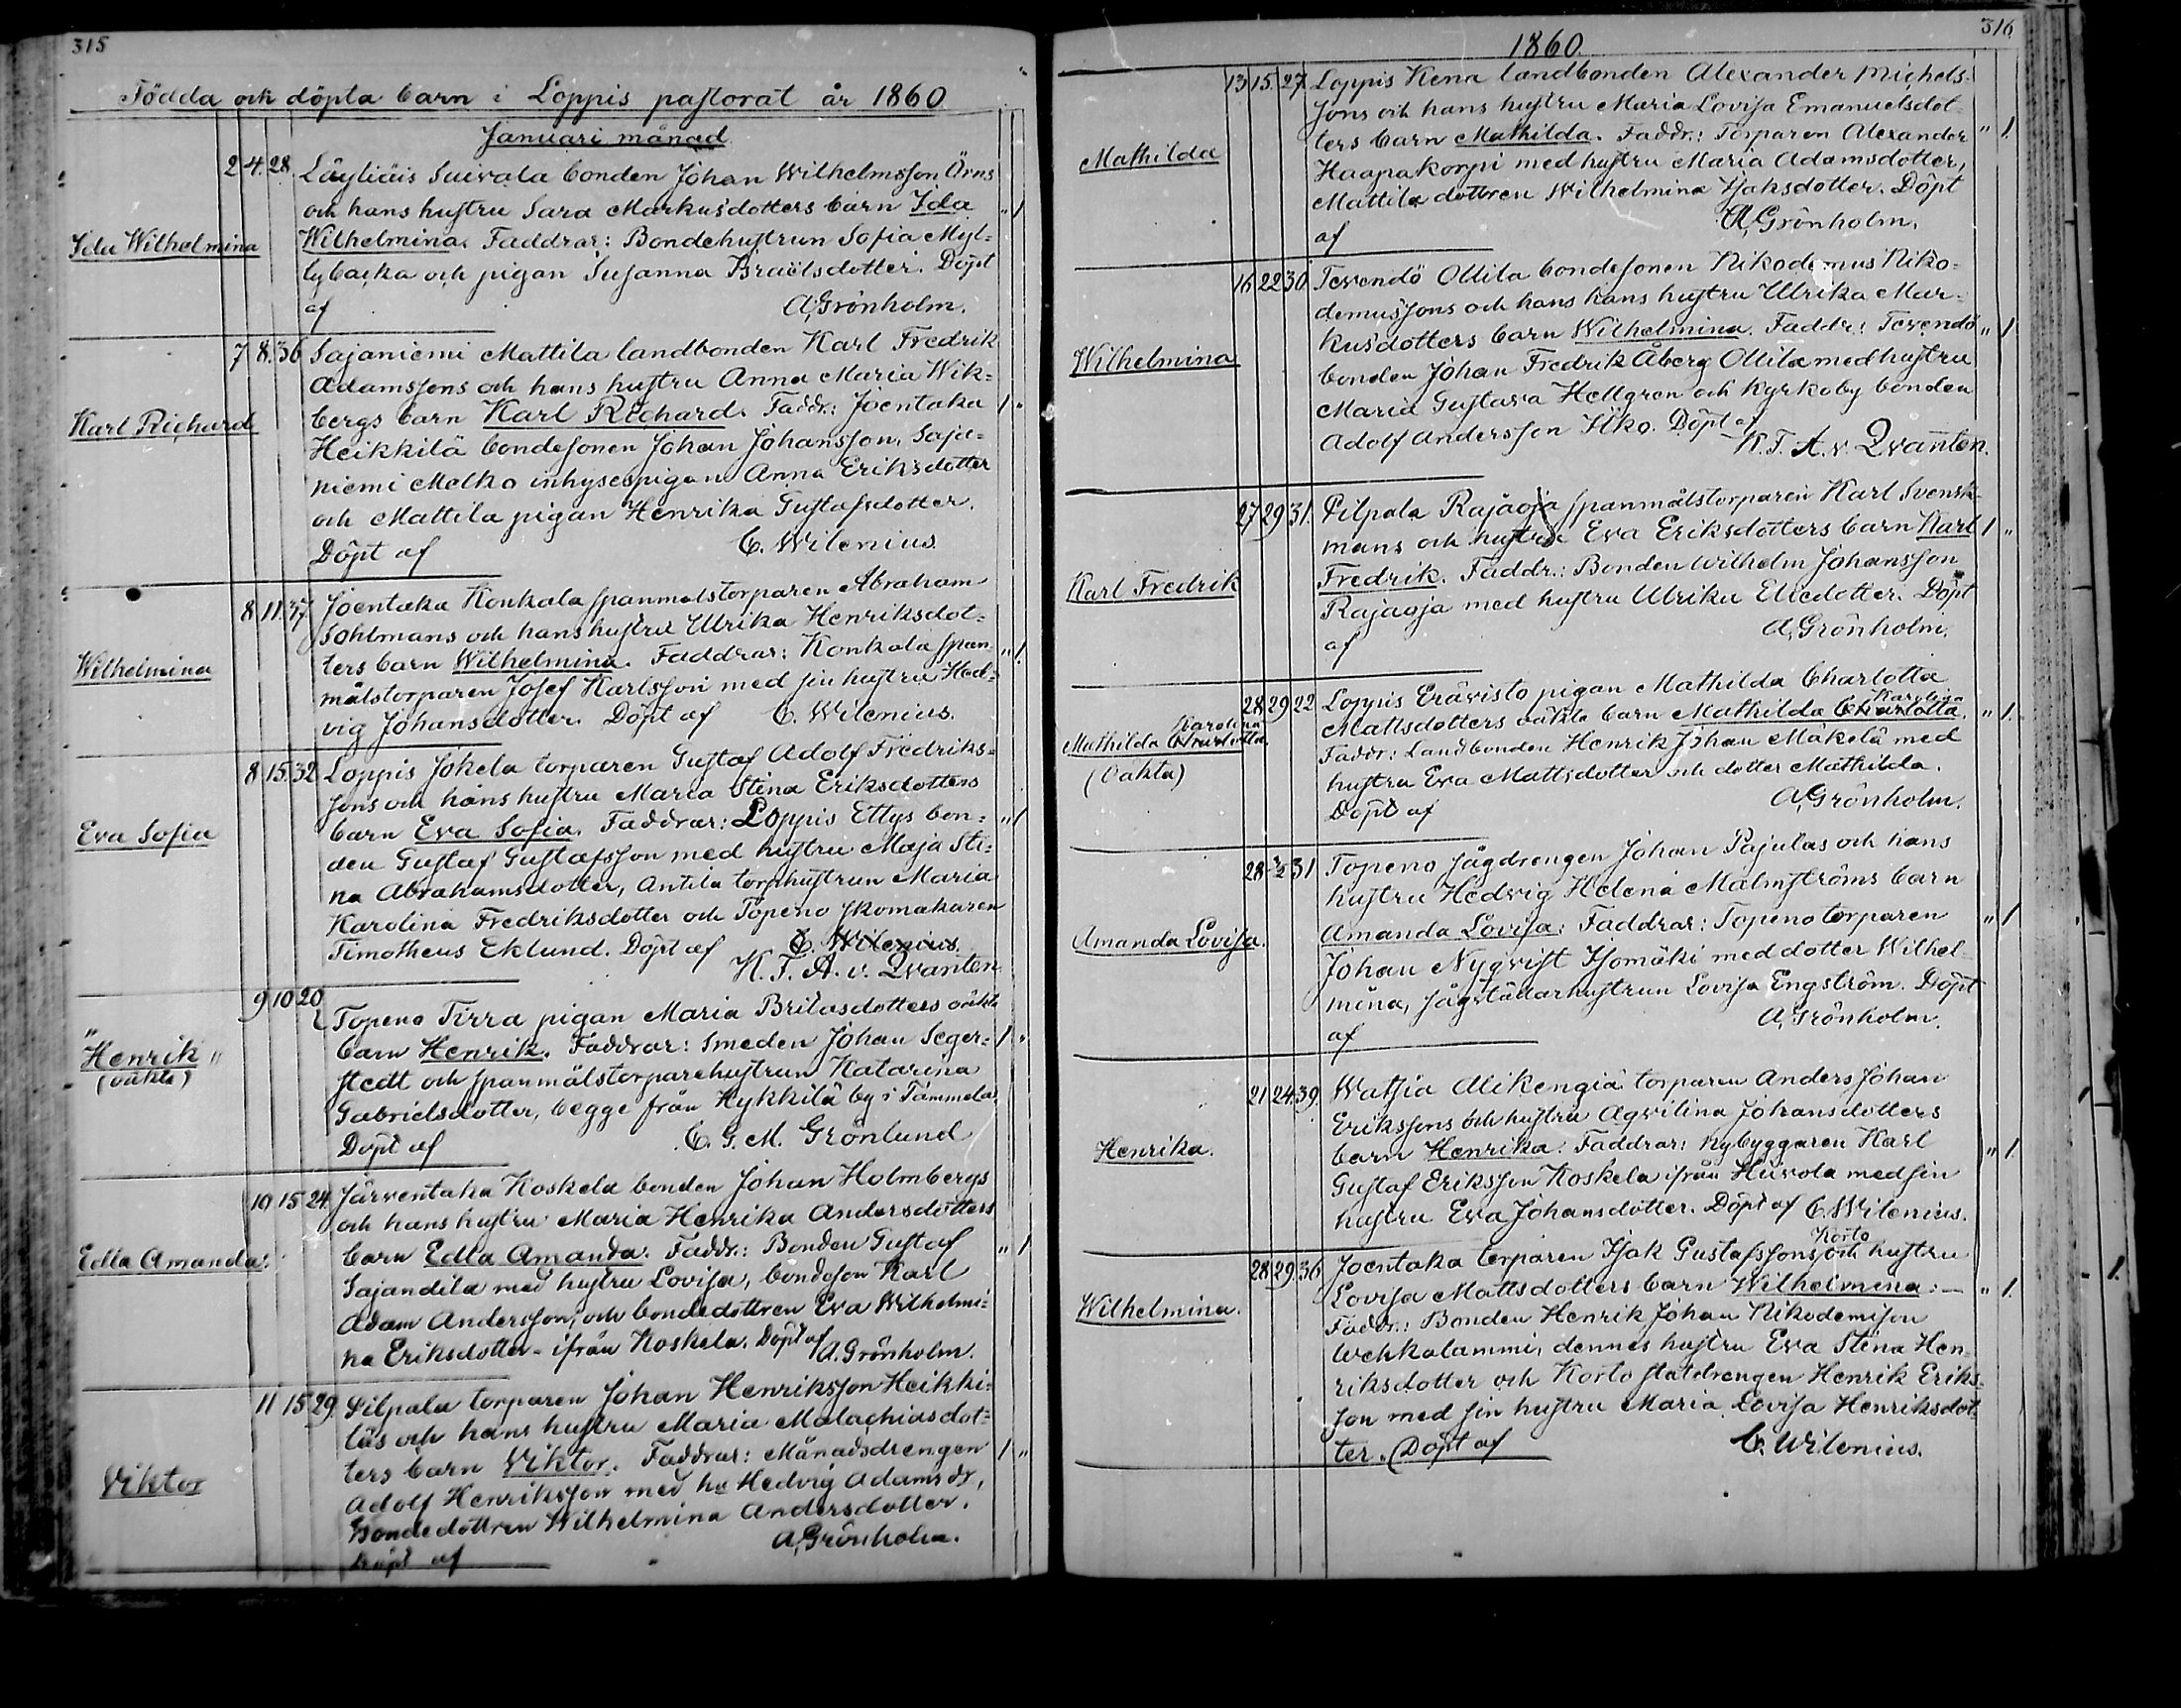 315
Födda och döpta barn i Loppis pastorat år 1860
Januari månad
2 4. 28. Läyliäis Suivala bonden Johan Wilhelmsson Örns
och hans hustru Sara Markusdotters barn Ida " 1
Ida Wilhelmina
Wilhelmina. Faddrar: Bondehustrun Sofia Myl=
lybacka och pigan Susanna Israëlsdotter. Döpt
af A. Grönholm.
7 8. 36 Sajaniemi Mattila landbonden Karl Fredrik
Adamssons och hans hustru Anna Maria Wik=
bergs barn Karl Richard. Faddr.: Joentaka 1 "
Karl Richard
Heikkilä bondesonen Johan Johansson, Saja=
niemi Melko inhysespigan Anna Eriksdotter
och Mattila pigan Henrika Gustafsdotter.
Döpt af C. Wilenius.
8 11. 37. Joentaka Konkala spanmalstorparen Abraham
Sohlmans och hans hustru Ulrika Henriksdot=
ters barn Wilhelmina. Faddrar: Konkala span " 1.
Wilhelmina
målstorparen Josef Karlsson med sin hustru Hed=
vig Johansdotter. Döpt af C. Wilenius.
8 15. 32 Loppis Jokela torparen Gustaf Adolf Fredriks=
sons och hans hustru Maria Stina Eriksdotters
Eva Sofia
barn Eva Sofia. Faddrar: Loppis Ettys bon= " 1
den Gustaf Gustafsson med hustru Maja Sti=
na Abrahamsdotter, Antila torphustrun Maria
Karolina Fredriksdotter och Topeno skomakaren
Timotheus Eklund. Döpt af C. Wilenius.
K. T. A. v. Qvanten
9 10 20 Topeno Tirra pigan Maria Britasdotters oäkta
" Henrik "
(oäkta)
barn Henrik. Faddrar: Smeden Johan Seger= 1 "
stedt och spanmålstorparehustrun Katarina
Gabrielsdotter, begge från Kykkilä by i Tammela
Döpt af C. G. M. Grönlund
10 15 24. Järventaka Koskela bonden Johan Holmbergs
och hans hustru Maria Henrika Andersdotters
Edla Amanda.
barn Edla Amanda. Faddr.: Bonden Gustaf " 1
Sajandila med hustru Lovisa, bondeson Karl
Adam Andersson, och bondedottren Eva Wilhelmi=
na Eriksdotter - ifrån Koskela. Döpt af A. Grönholm.
11 15 29. Pilpala torparen Johan Henriksson Heikki=
läs och hans hustru Maria Malachiasdot=
ters barn Viktor. Faddrar: Månadsdrengen 1 "
Viktor
Adolf Henriksson med hu Hedvig Adamsdr,
Bondedottren Wilhelmina Andersdotter.
Döpt af A. Grönholm.
316
1860.
13 15. 27. Loppis Kena landbonden Alexander Michels=
sons och hans hustru Maria Lovisa Emanuelsdot=
ters barn Mathilda. Faddr.: Torparen Alexander " 1.
Mathilda
Haapakorpi med hustru Maria Adamsdotter,
Mattila dottren Wilhelmina Isaksdotter. Döpt
af A. Grönholm.
16 22 30. Tevendö Ollila bondesonen Nikodemus Niko=
demussons och hans hans hustru Ulrika Mar=
kusdotters barn Wilhelmina. Faddr: Tevendö " 1
Wilhelmina
bonden Johan Fredrik Åberg Ollila med hustru
Maria Gustava Hellgren och Kyrkoby bonden
Adolf Andersson Ilko. Döpt af K. T. A. v. Qvanten.
27 29 31. Pilpala Rajaoja spanmålstorparen Karl Svensk=
mans och hustru Eva Eriksdotters barn Karl 1 "
Karl Fredrik
Fredrik. Faddr.: Bonden Wilhelm Johansson
Rajaoja med hustru Ulrika Eliedotter. Döpt
af A. Grönholm.
28 29 22 Loppis Erävisto pigan Mathilda Charlotta
Karolina
Mattsdotters oäkta barn Mathilda Charlotta. " 1.
Karolina
Mathilda Charlotta.
(Oäkta)
Faddr: Landbonden Henrik Johan Mäkelä med
hustru Eva Mattsdotter och dotter Mathilda.
Döpt af A. Grönholm.
28 3/2 31 Topeno sågdrengen Johan Pajulas och hans
hustru Hedvig Helena Malmströms barn
Amanda Lovisa.
Amanda Lovisa: Faddrar: Topeno torparen " 1
Johan Nyqvist Isomäki med dotter Wilhel=
mina, sågställarhustrun Lovisa Engström. Döpt
af A. Grönholm.
21 24. 39. Watsia Alikengiä torparen Anders Johan
Erikssons och hustru Agvilina Johansdotters
Henrika.
barn Henrika. Faddrar: Nybyggaren Karl " 1.
Gustaf Eriksson Koskela ifrån Hirvola med sin
hustru Eva Johansdotter. Döpt af C. Wilenius.
Korto
28 29. 36. Joentaka torparen Isak Gustafssons och hustru
Lovisa Mattsdotters barn Wilhelmina:— " 1.
Wilhelmina.
Faddr.: Bonden Henrik Johan Nikodemison
Wehkalammi, dennes hustru Eva Stina Hen=
riksdotter och Korto statdrengen Henrik Eriks=
son med sin hustru Maria Lovisa Henriksdot=
ter. Döpt af C. Wilenius.